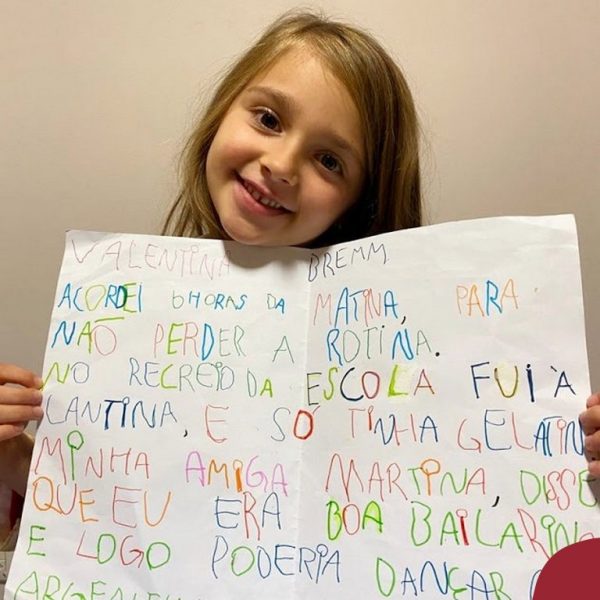 VALENTINA BREMM
ACORDEI 6 HORAS DA MATINA, PARA
NÃO PERDER A ROTINA.
NO RECREIO DA ESCOLA FUI À
CANTINA, E SÓ TINHA GELATIN
MINHA AMIGA MARTINA, DISSE
QUE EU ERA BOA BAILARIN
E LOGO PODERIA DANÇAR